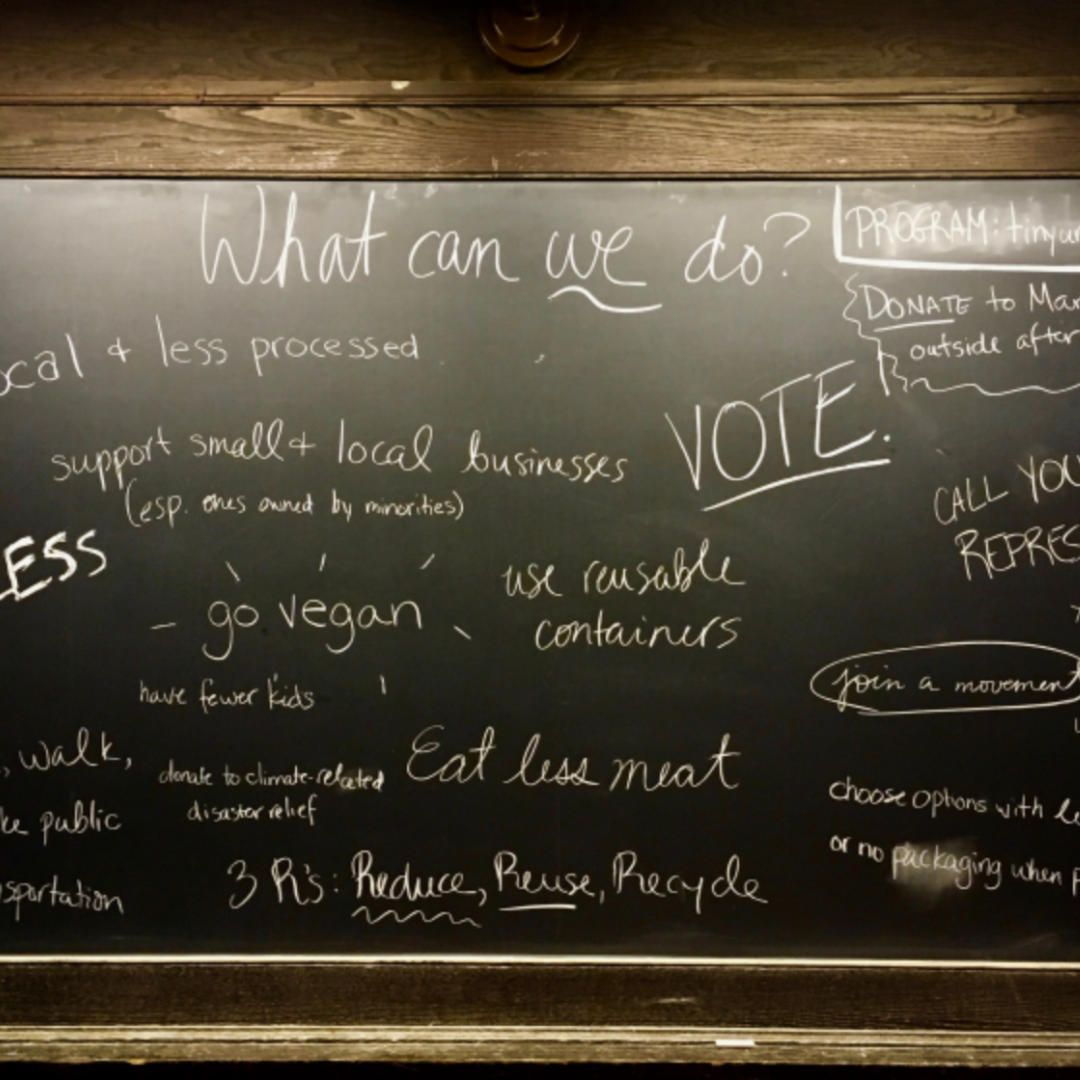 What can we do?
PROGRAM: tinyur
DONATE to Mar
outside after
ocal & less processed
VOTE.
support small & local businesses
(esp. ones owned by minorities)
CALL YOU
REPRES
ESS
use reusable
containers
go vegan
join a movement
have fewer kids
, walk,
ke public
sportation
donate to climate-related
disaster relief
Eat less meat
choose options with le
or no packaging when p
3 R's: Reduce, Reuse, Recycle